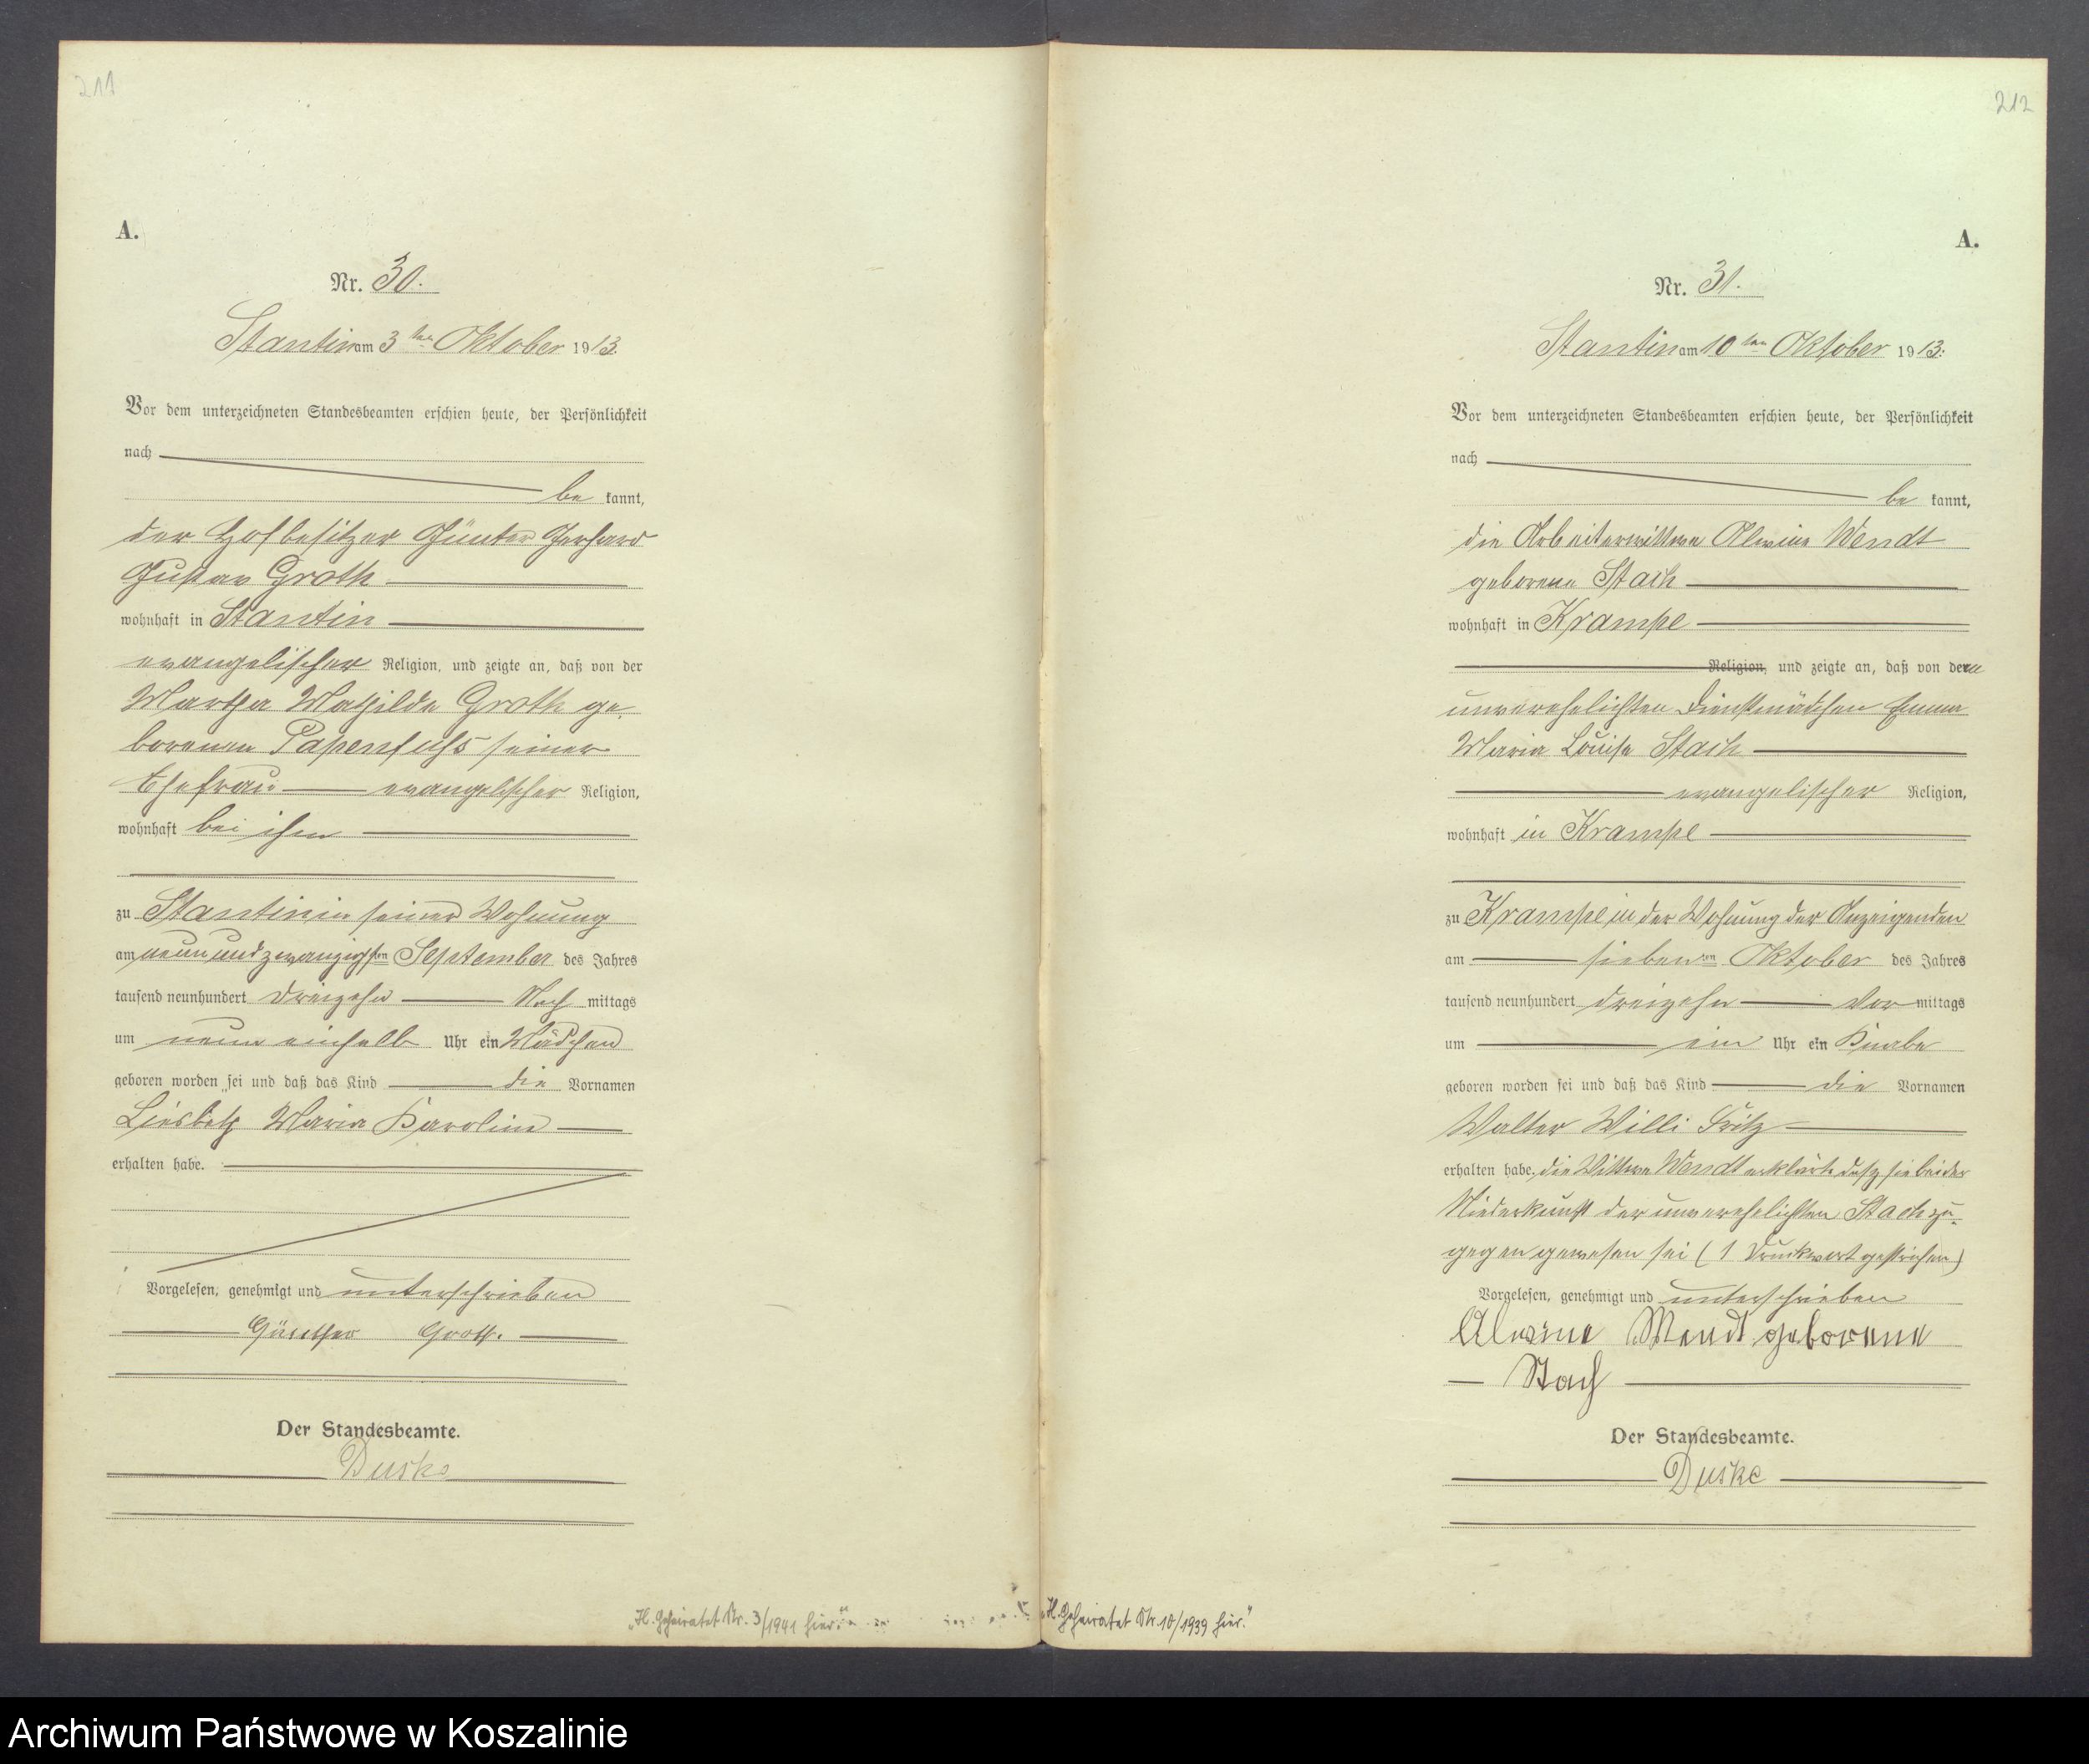 211
A.
Nr. 30.
Stantin am 3ten Oktober 1913.
Vor dem unterzeichneten Standesbeamten erschien heute, der Persönlichkeit
nach
be kannt,
der Hofbesitzer Günter Gerhard
Gustav Groth
wohnhaft in Stantin
evangelischer Religion, und zeigte an, daß von der
Martha Mathilde Groth ge-
borenen Papenfuß seiner
Ehefrau evangelischer Religion,
wohnhaft bei ihm
zu Stantin in seiner Wohnung
am neunundzwanzigsten September des Jahres
tausend neunhundert dreizehn Nach mittags
um neun einhalb Uhr ein Mädchen
geboren worden sei und daß das Kind die Vornamen
Liesbeth Maria Karoline
erhalten habe.
Vorgelesen, genehmigt und unterschrieben
Günther Groth.
Der Standesbeamte.
Duske
„H. Geheiratet Nr. 3/1941 hier."
212
A.
Nr. 31.
Stantin am 10ten Oktober 1913.
Vor dem unterzeichneten Standesbeamten erschien heute, der Persönlichkeit
nach
be kannt,
die Arbeiterwittwe Alwine Wendt
geborene Stach
wohnhaft in Krampe
Religion, und zeigte an, daß von dem
unverehelichten Dienstmädchen Emma
Maria Louise Stach
evangelischer Religion,
wohnhaft in Krampe
zu Krampe in der Wohnung der Anzeigenden
am siebenten Oktober des Jahres
tausend neunhundert dreizehn Vor mittags
um ein Uhr ein Knabe
geboren worden sei und daß das Kind die Vornamen
Walter Willi Fritz
erhalten habe. die Wittwe Wendt erklärte daß sie bei der
Niederkunft der unverehelichten Stach zu-
gegen gewesen sei (1 Druckwort gestrichen)
Vorgelesen, genehmigt und unterschrieben
Alwine Wendt geborene
Stach
Der Standesbeamte.
Duske
„H. Geheiratet Nr. 10/1939 hier."
Archiwum Państwowe w Koszalinie